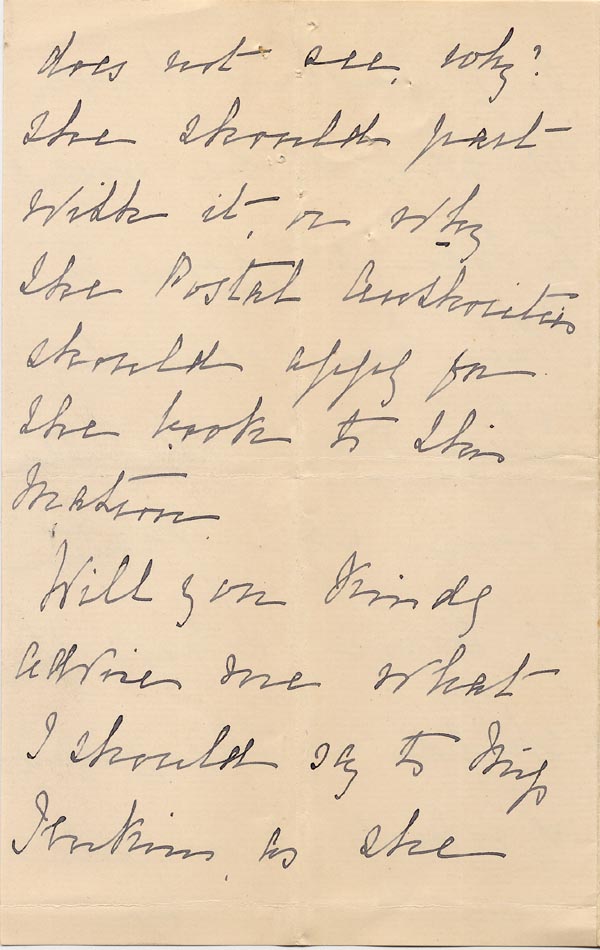 does not see, why?
she should part
with it, or why
the Postal Authorities
should apply for
the book to this
Matron
Will you Kindly
advise me what
I should say to Miss
Jenkins, as she